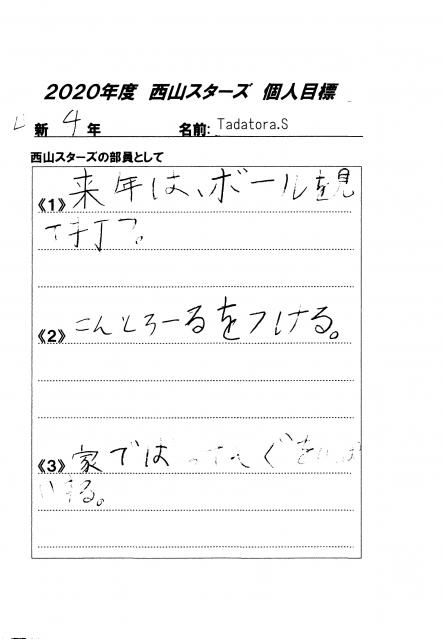 2020年度 西山スターズ 個人目標
新 4 年 名前: Tadatora.S
西山スターズの部員として
《1》 来年は、ボールを見
て打つ。
《2》 こんとろーるをつける。
《3》 家でばってんぐをいっぱ
いする。